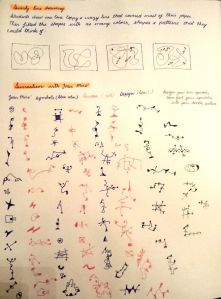 Squiggly line drawing
Students draw one long loopy & wavy line that covered most of their paper.
Then filled the shapes with as many colors, shapes & patterns that they
could think of.
Surrealism with Joan Miro
Joan Miro Symbols (blue) Design
Design your own symbols